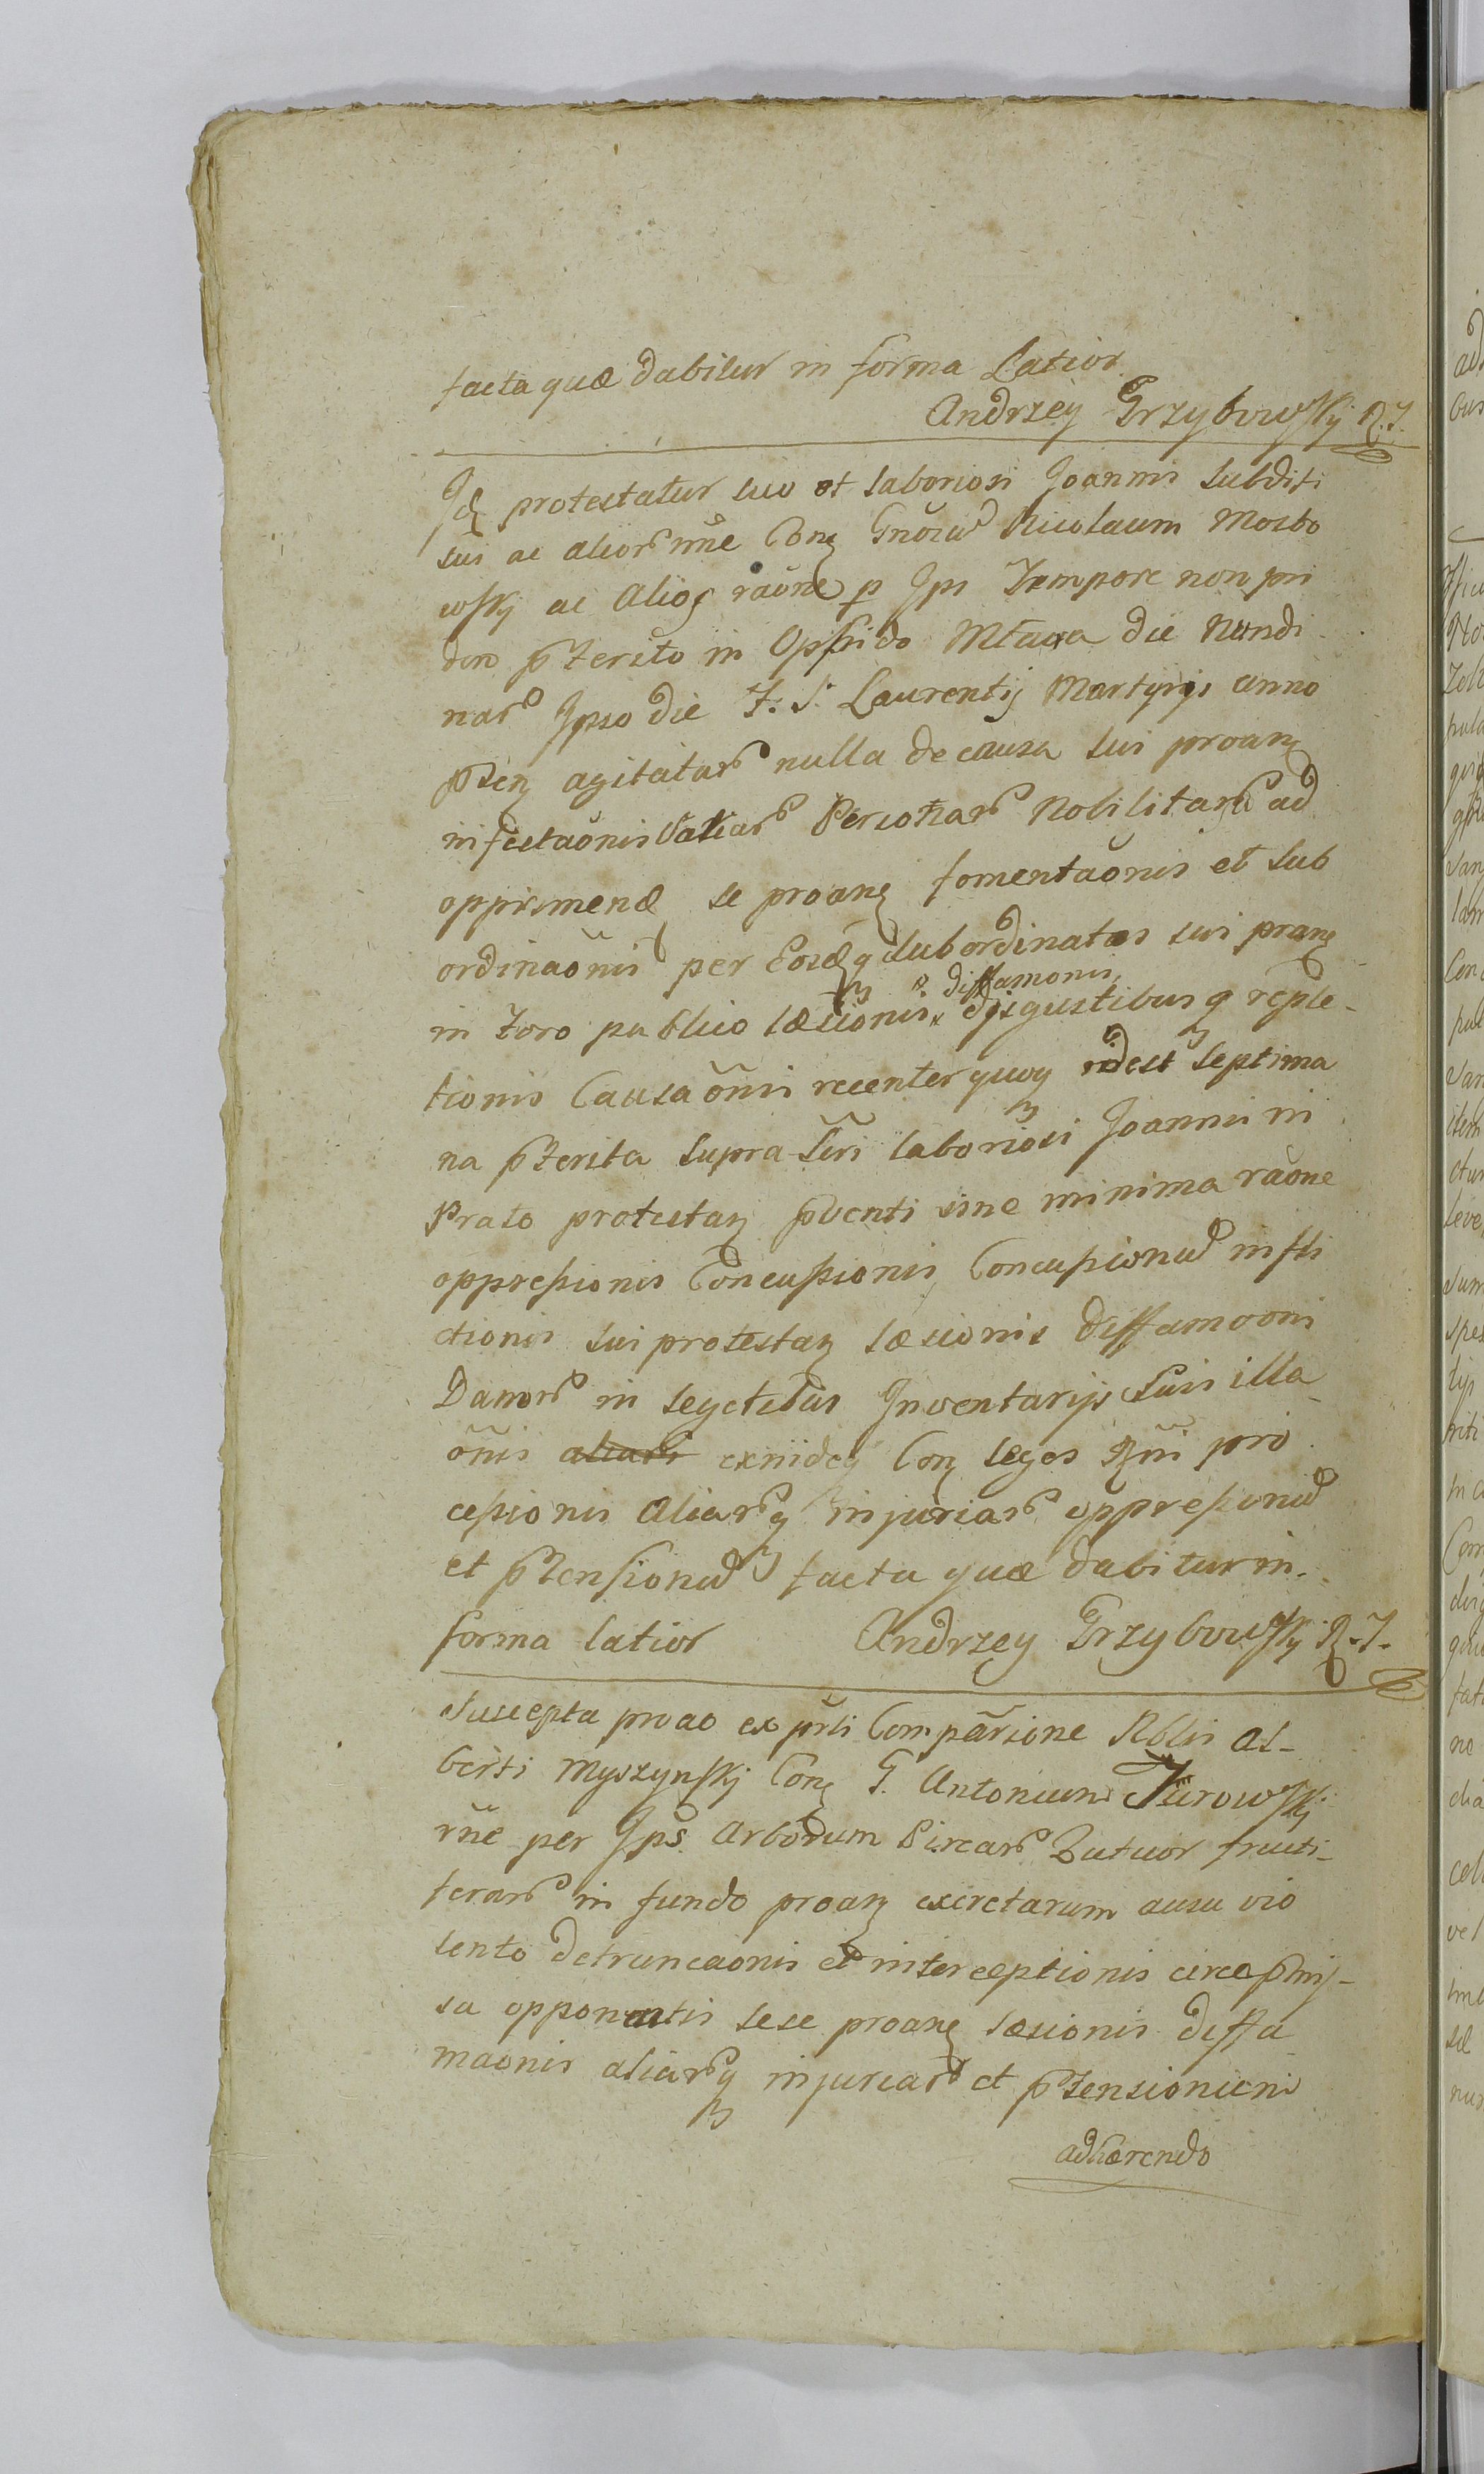 facta quæ dabitur in forma Latior
Andrzey Grzybowskj R. J.
Jdꝫ protestatur suo et laboriosi Joannis subditi
sui ac alior nne Conꝫ Gnosu Nicolaum Mosbo
wskj ac Alios raone p Jps Tempore non pri
dem pterito in Oppido Mława die Nundi
nar Jpso die F. S. Laurentij Martyris anno
pntenꝫ agitatar nulla de causa sui proanꝫ
insectaonis Variar Personar Nobilitaru ad
opprimend se proanꝫ fomentaonis et sub
ordinaonis per Eosdꝫq subordinatos sui pranꝫ
in Foro publico læsionis, diffamonis,
disgustibusq reple-
tionis Causaonis recenter quoq idest septima
na pterita supra scri laboriosi Joannis in
Prato protestanꝫ pventi sine minima raone
oppressionis Concussionis, Concussionu infli
ctionis sui protestanꝫ læsionis diffamaoni
Damnor in segetibus Inventarijs Suis illa
onis aliarū exniidꝫ Conꝫ leges Rni pro
cessionis Aliarqꝫ injuriar oppressionu
et ptensionu facta quæ dabitur in
forma latior Andrzey Grzybowskj R. J.
Suscepta proao ex prsti Comparsione Nblis Al-
berti Myszynskj Conꝫ G. Antonium Jurowskj
rne per Jps Arborum Pircar Qutuor fructi-
ferar in fundo proanꝫ excretarum ausu vio
lento detruncaonis et interceptionis circa pmis-
sa opponentis sese proanꝫ læsionis diffa
maonis aliarqꝫ injuriar et ptensionum
adhærendo